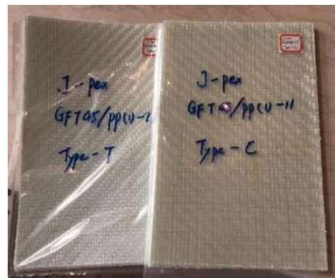 J-pex
GFT05/pp(1)-
Type-T
J-pex
GFT /pp(1)-11
Type-C